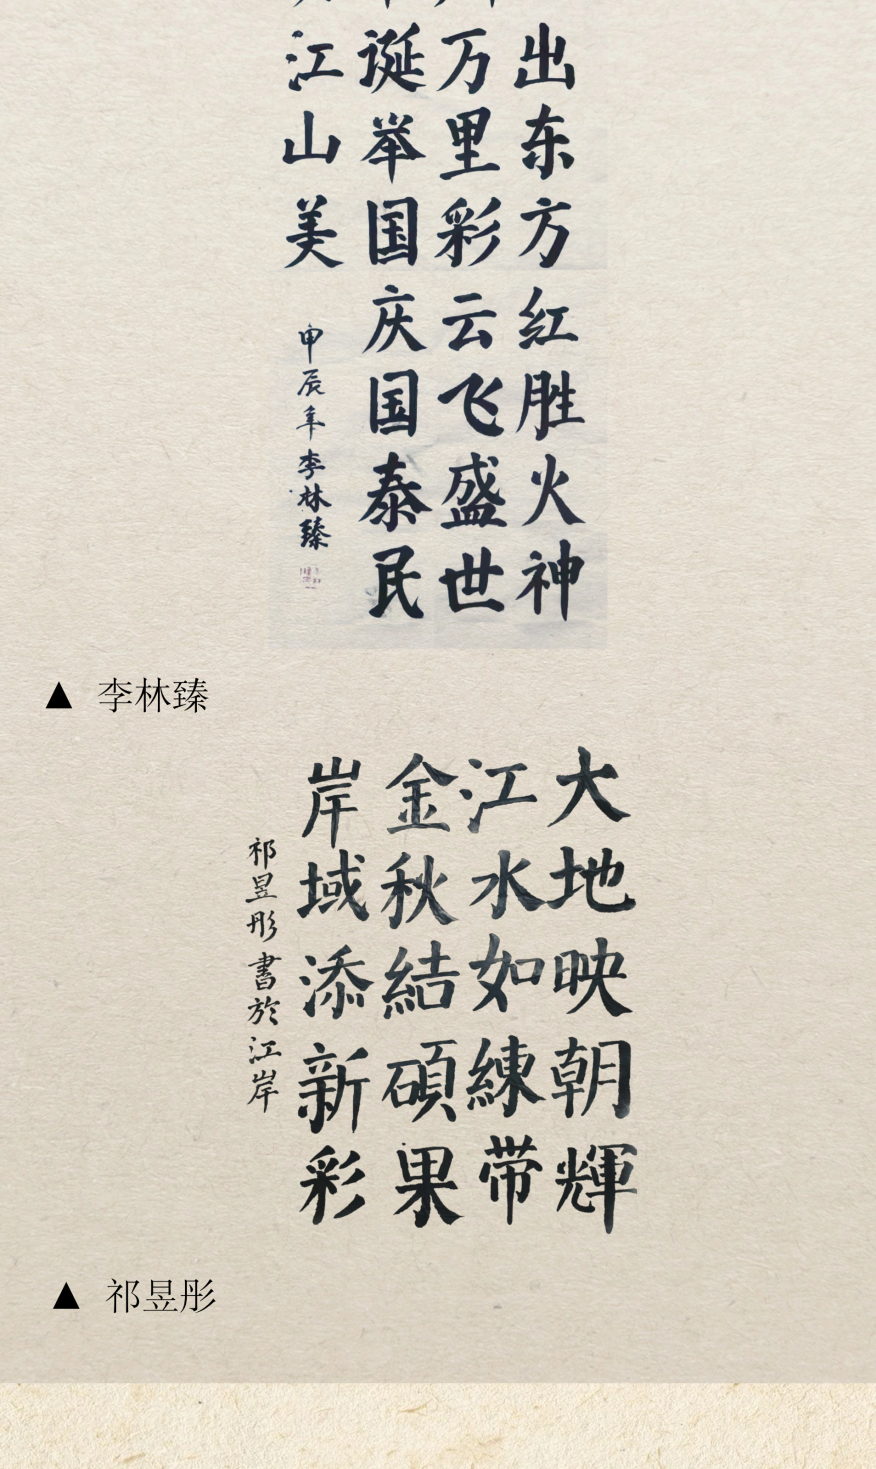 出东方红胜火神
万里彩云飞盛世
诞举国庆国泰民
江山美
申辰年李林臻
▲ 李林臻
大地映朝輝
江水如練带
金秋結碩果
岸域添新彩
祁昱彤書於江岸
▲ 祁昱彤